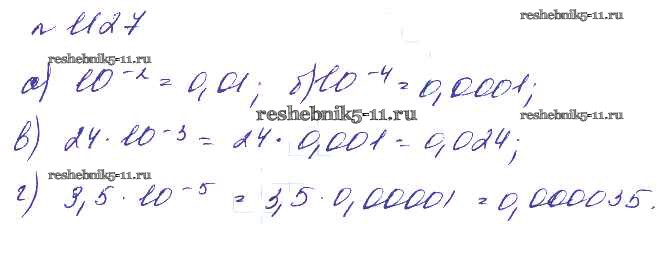 № 1127
reshebnik5-11.ru
а) 10⁻² = 0,01; б) 10⁻⁴ = 0,0001;
reshebnik5-11.ru
в) 24 · 10⁻³ = 24 · 0,001 = 0,024;
reshebnik5-11.ru
г) 3,5 · 10⁻⁵ = 3,5 · 0,00001 = 0,000035.